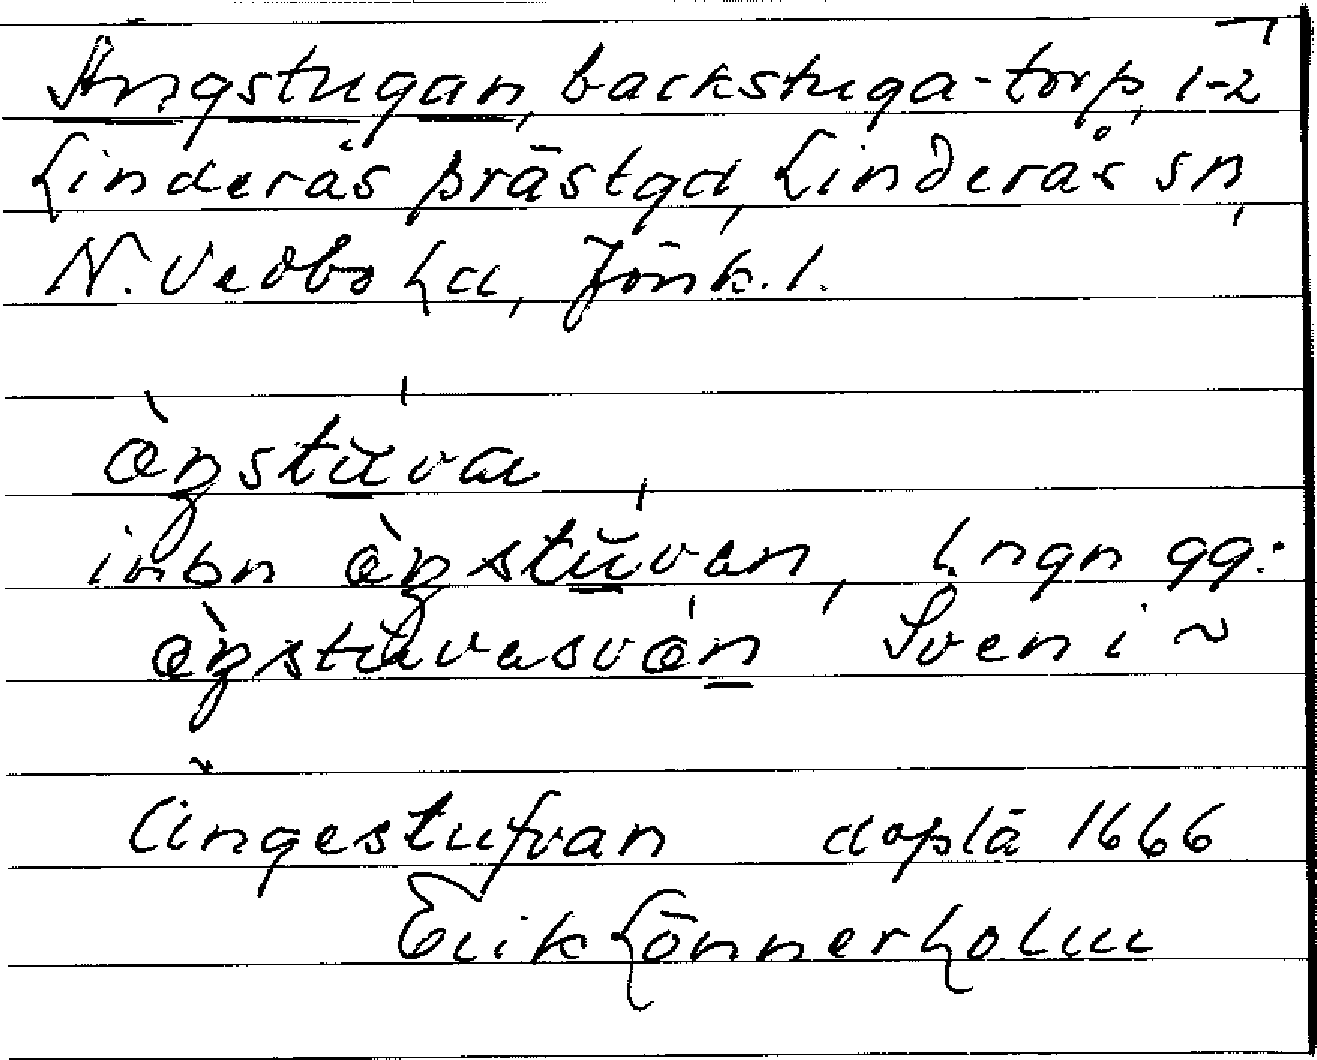 Ängstugan, backstuga-torp, 1-2
Linderås prästgd, Linderås sn,
N. Vedbo hd, Jönk. l.
ä̀ŋstŭ́va
inbn ä̀ŋstŭ́van, hngn gg:
ä̀ŋstŭvasvä́n Sven i ~
ängestufvan doplä 1666
Erik Lönnerholm